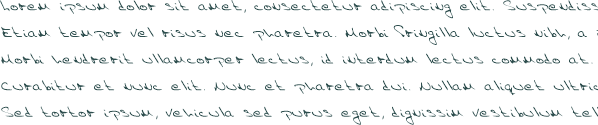 Lorem ipsum dolor sit amet, consectetur adipiscing elit. Suspendiss
Etiam tempor vel risus nec pharetra. Morbi fringilla luctus nibh, a i
Morbi hendrerit ullamcorper lectus, id interdum lectus commodo at.
Curabitur et nunc elit. Nunc et pharetra dui. Nullam aliquet ultric
Sed tortor ipsum, vehicula sed purus eget, dignissim vestibulum tell